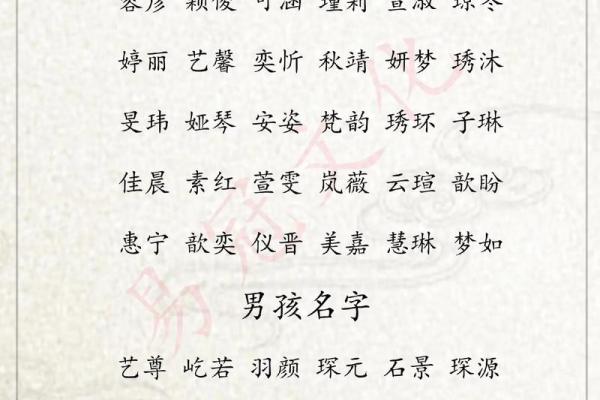 婷丽 艺馨 奕忻 秋靖 妍梦 琇沐
旻玮 娅琴 安姿 梵韵 琇环 子琳
佳晨 素红 萱雯 岚薇 云瑄 歆盼
惠宁 歆奕 仪晋 美嘉 慧琳 梦如
男孩名字
艺尊 屹若 羽颜 琛元 石景 琛源
易冠文化